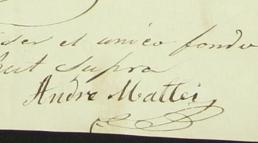 ser el unico fondo
ut supra
Andre Mattei